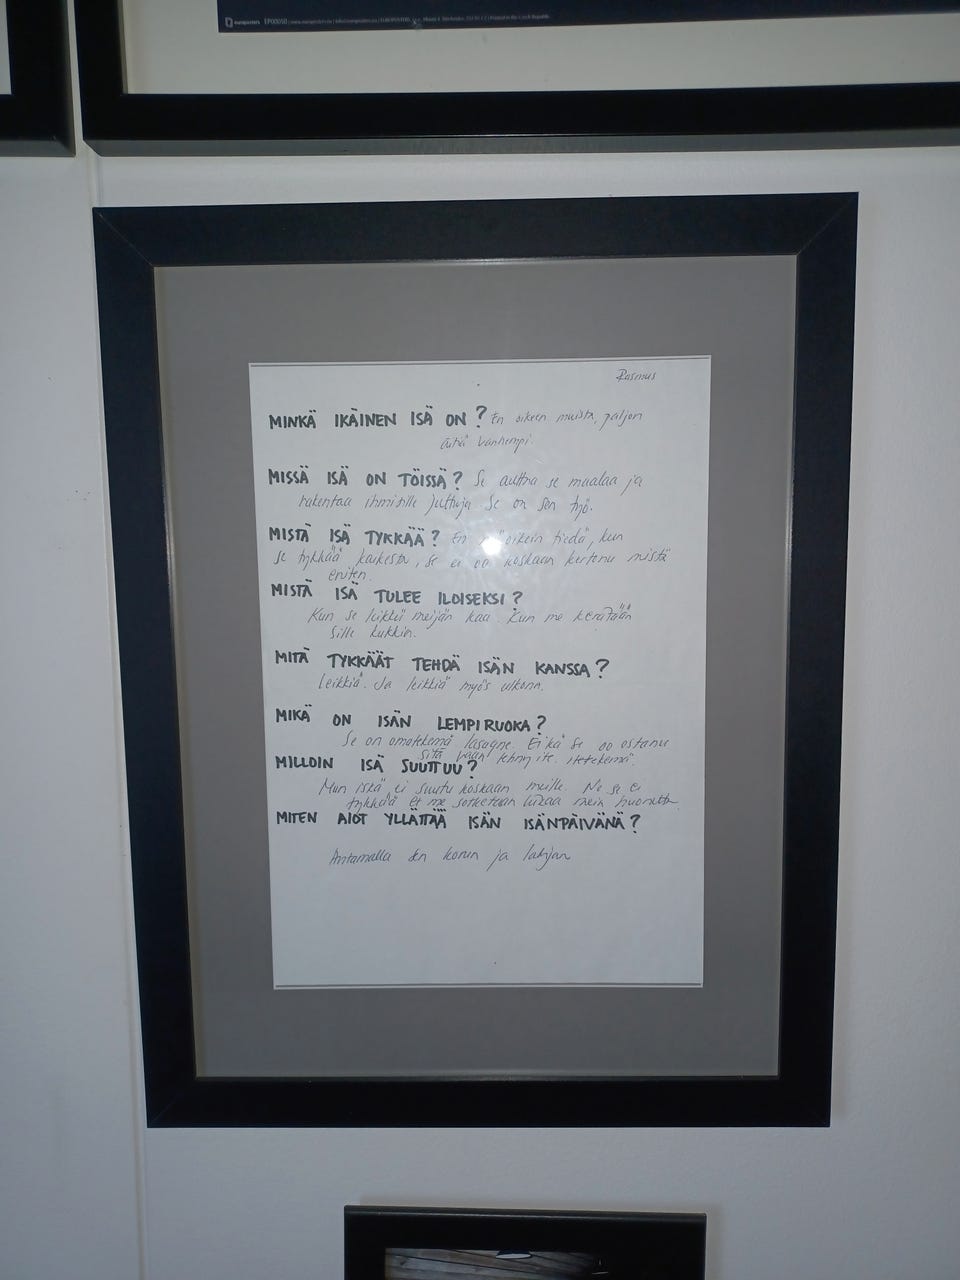 europosters EP00050 | www.europosters.eu | info@europosters.eu | EUROPOSTERS, Printed in the Czech Republic
Rasmus
MINKÄ IKÄINEN ISÄ ON? En oikeen muista, paljon
äitiä vanhempi.
MISSÄ ISÄ ON TÖISSÄ? Se auttaa se maalaa ja
rakentaa ihmisille juttuja. Se on sen työ.
MISTÄ ISÄ TYKKÄÄ? En oikein tiedä, kun
se tykkää kaikesta, se ei oo koskaan kertonu mistä
eniten.
MISTÄ ISÄ TULEE ILOISEKSI?
Kun se leikkii meijän kaa. Kun me kerätään
sille kukkia.
MITÄ TYKKÄÄT TEHDÄ ISÄN KANSSA?
Leikkiä. Ja leikkiä myös ulkona.
MIKÄ ON ISÄN LEMPIRUOKA?
Se on omatekemä lasagne. Eikä se oo ostanu
sitä vaan tehny ite. itetekemä.
MILLOIN ISÄ SUUTTUU?
Mun iskä ei suutu koskaan meille. No se ei
tykkää et me sotketaan liikaa meiä huonetta.
MITEN AIOT YLLÄTTÄÄ ISÄN ISÄNPÄIVÄNÄ?
Antamalla sen korin ja lahjan